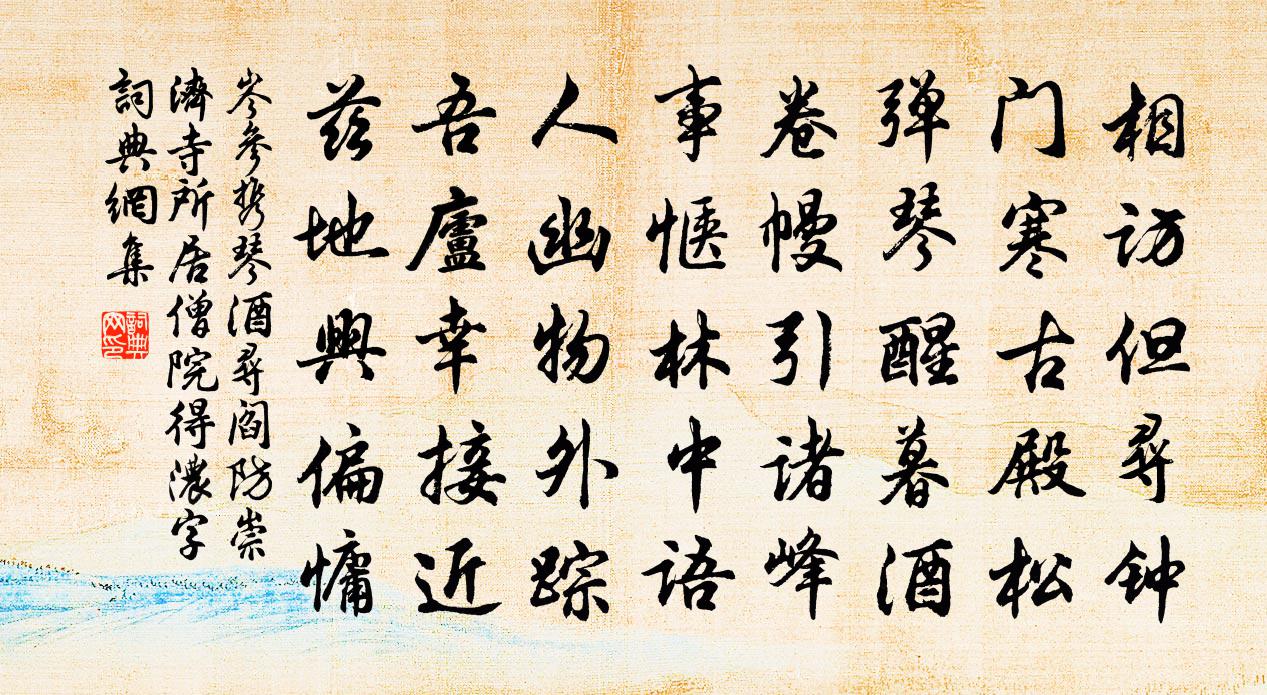 相访但尋钟
门寒古殿松
弹琴醒暮酒
卷幔引诸峰
事惬林中语
人幽物外踪
吾廬幸接近
兹地興偏慵
岑參携琴酒尋閻防崇
濟寺所居僧院得濃字
詞典網集
詞典
网印